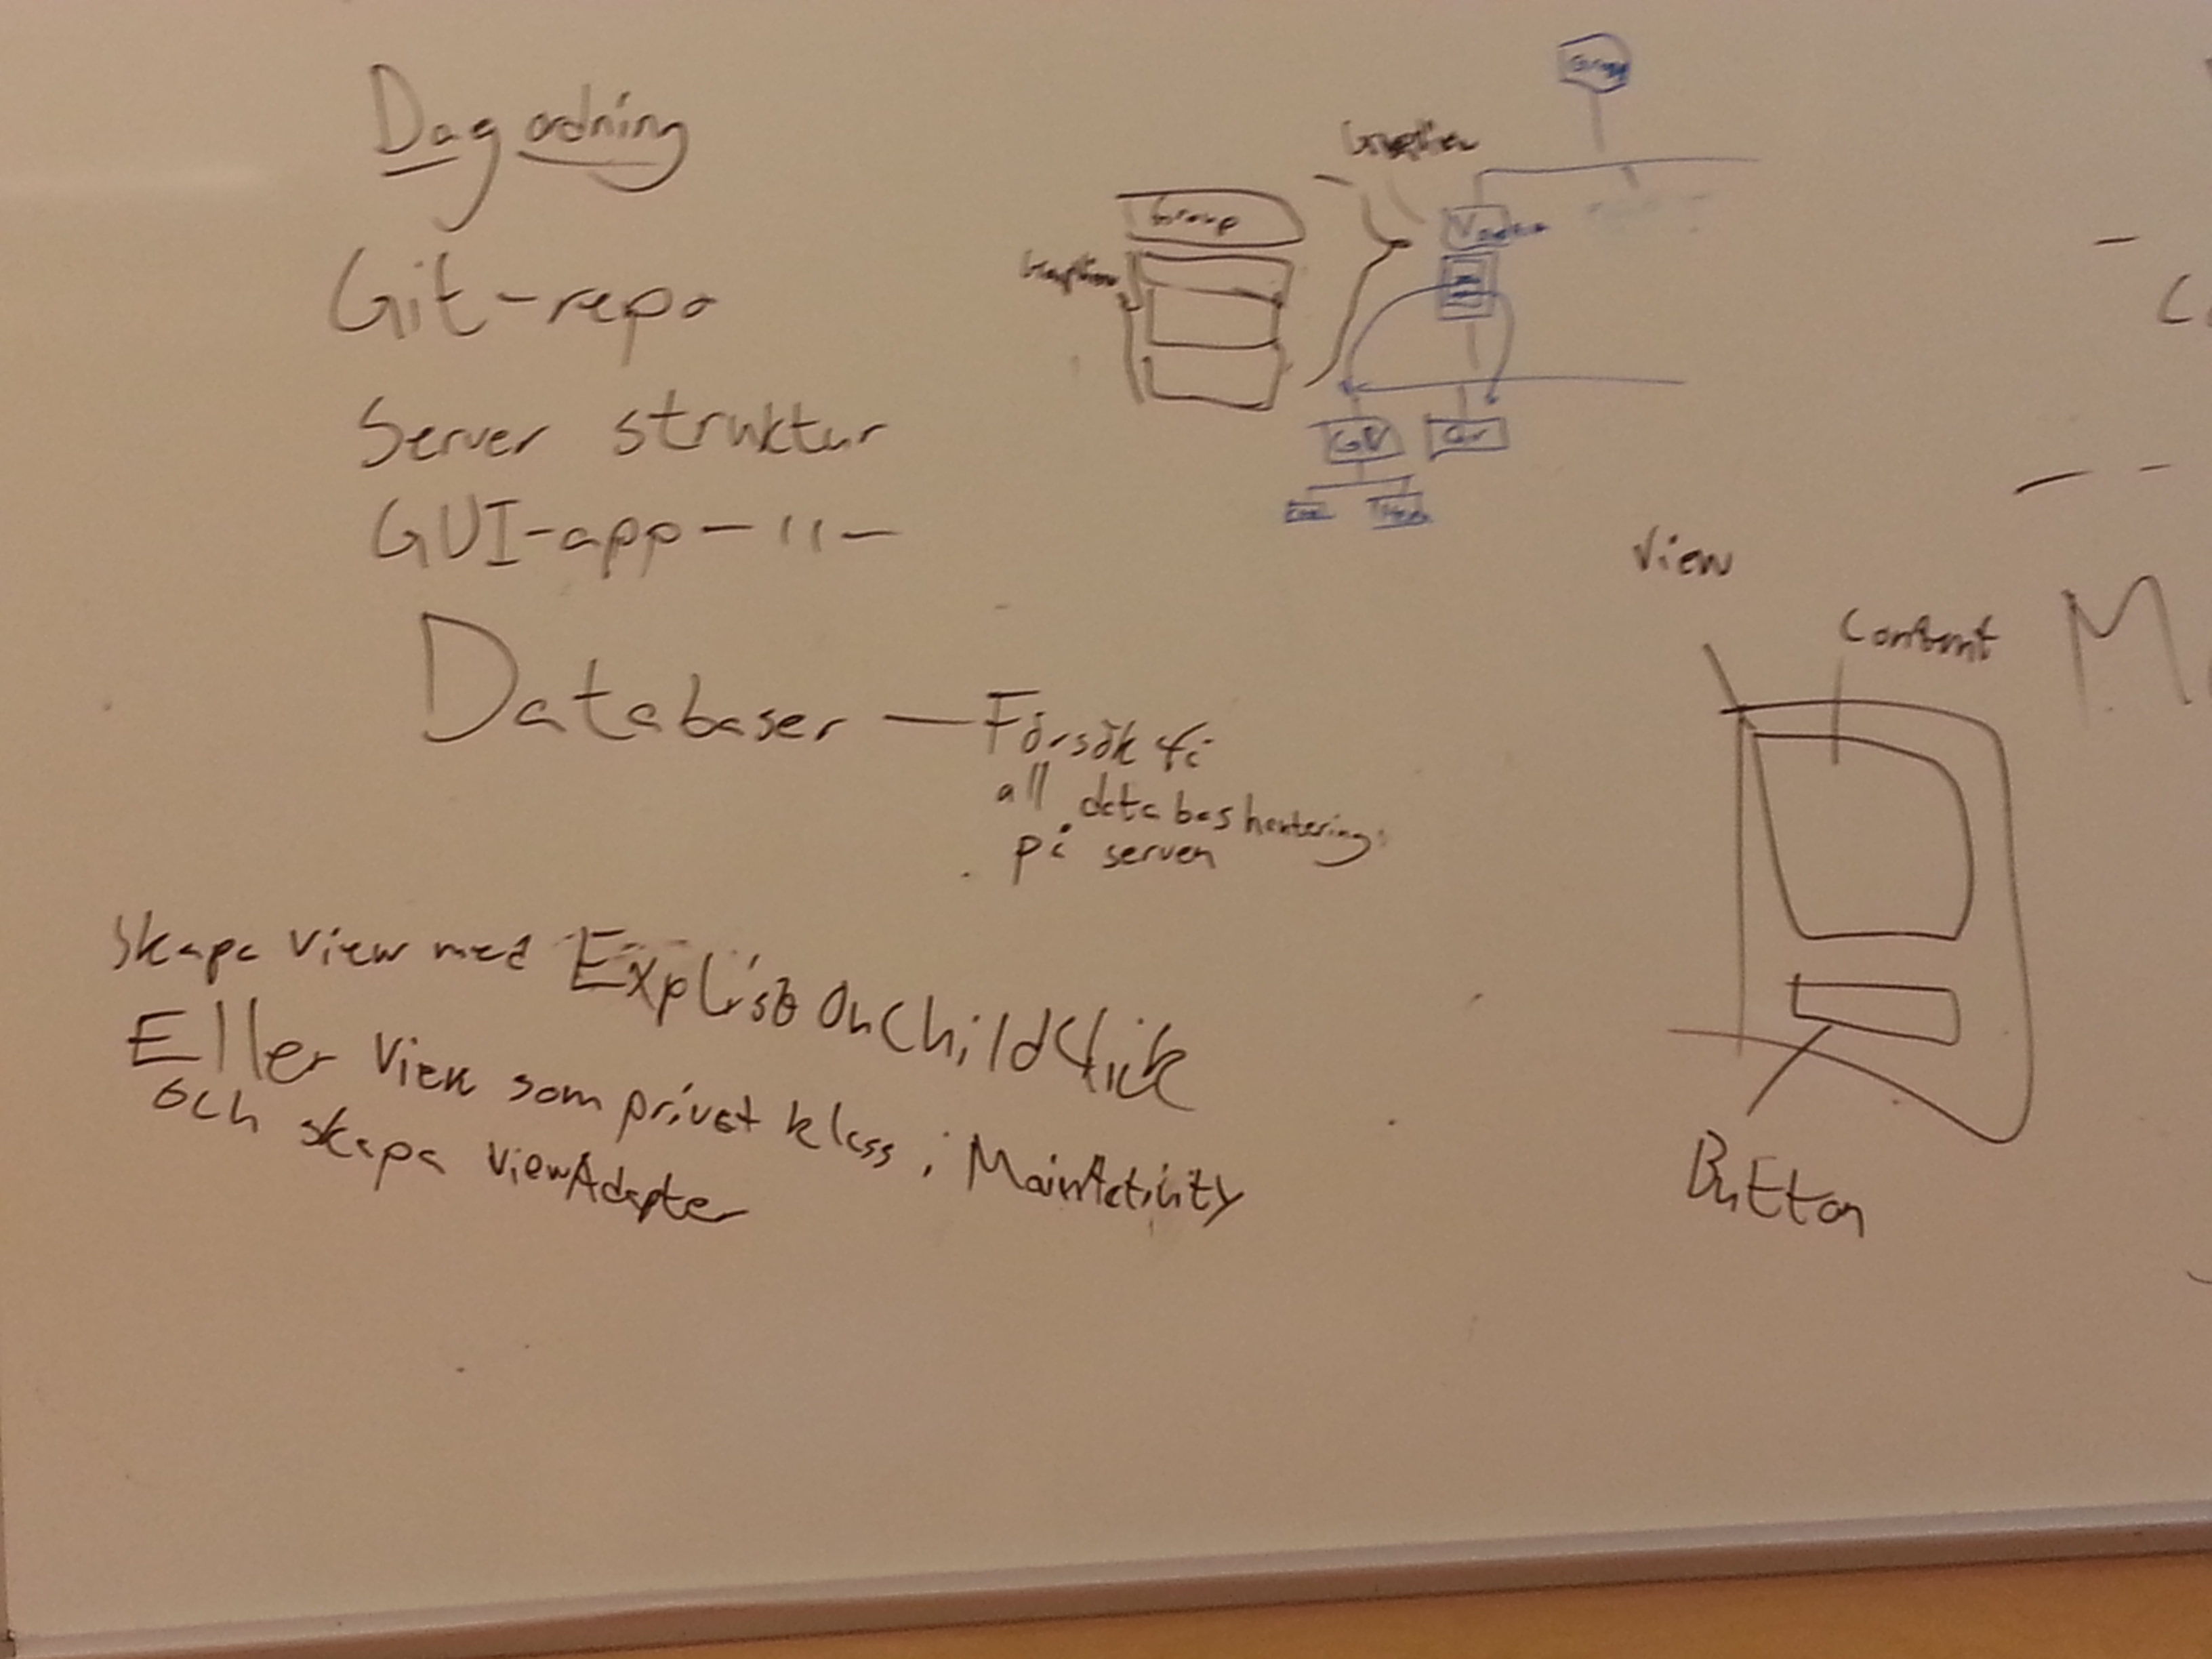 Dagordning
Git-repo
Server struktur
GUI-app - 11 -
Databaser — Försök få
all databashantering
på serven
Skapa view med ExpListOnChildClick
Eller View som privat klass i MainActivity
och skapa viewAdapter
Group
View
Content
Button